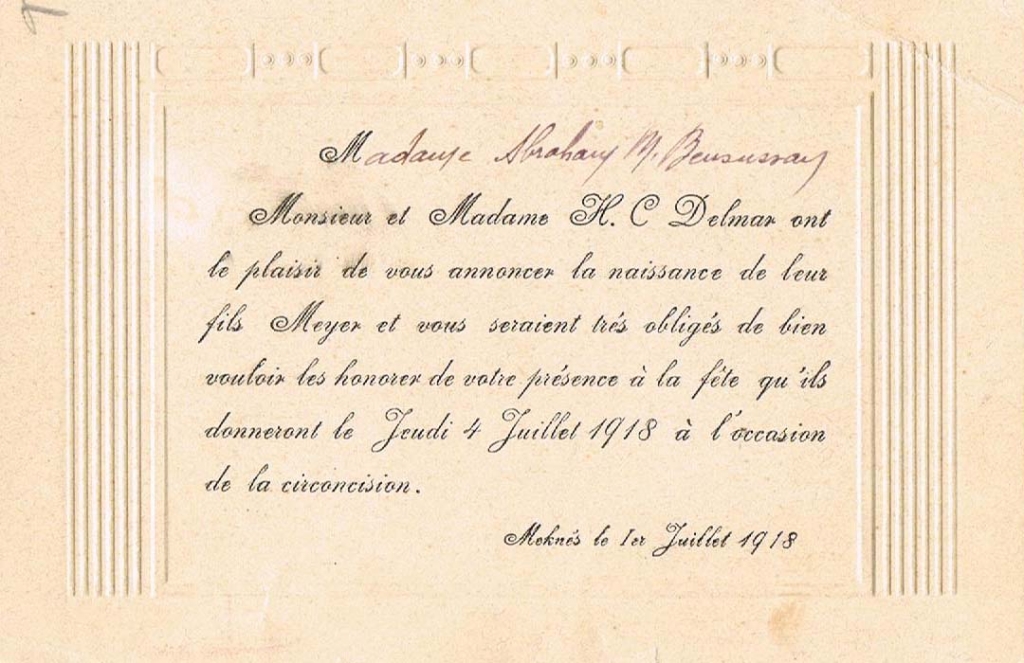 Madame Abraham M. Bensussan
Monsieur et Madame H. C Delmar ont
le plaisir de vous annoncer la naissance de leur
fils Meyer et vous seraient trés obligés de bien
vouloir les honorer de votre présence à la fête qu'ils
donneront le Jeudi 4 Juillet 1918 à l'occasion
de la circoncision.
Meknés le 1er Juillet 1918